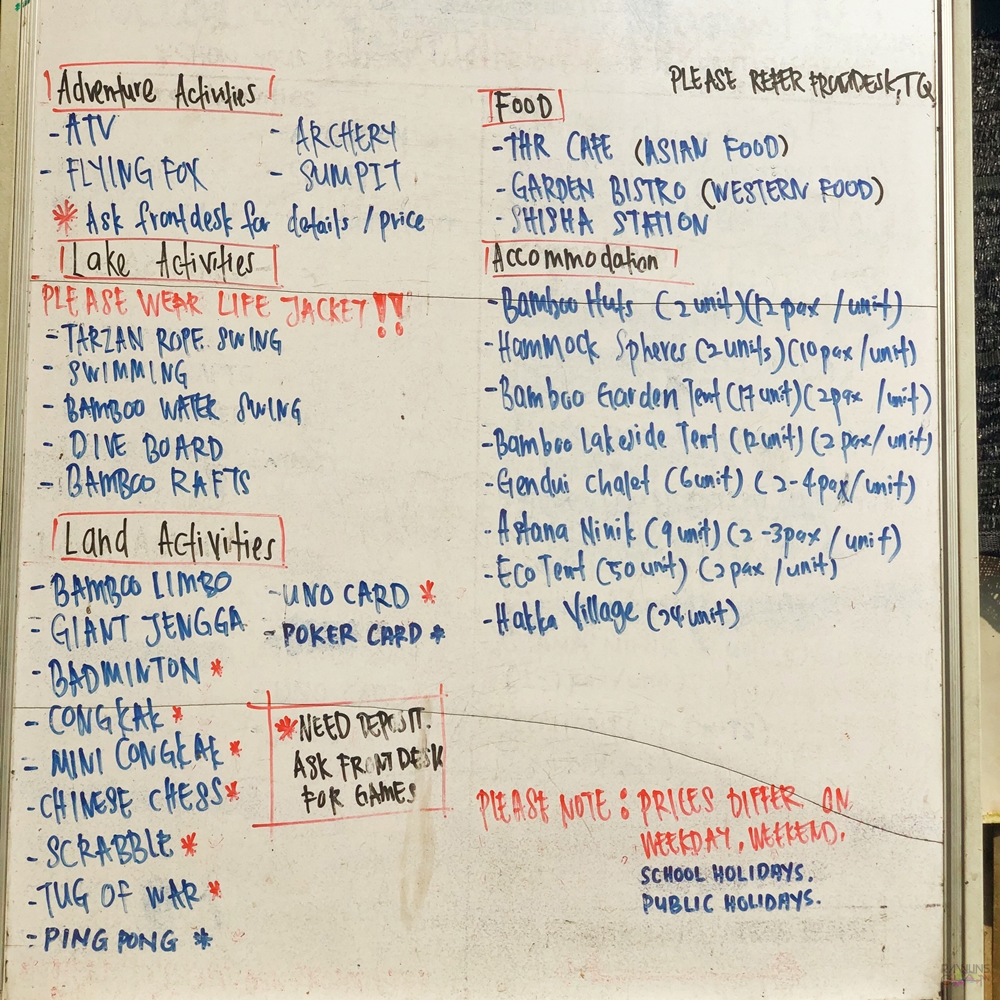 PLEASE REFER FRONTDESK, TQ
Adventure Activities
- ATV
- ARCHERY
- FLYING FOX
- SUMPIT
* Ask frontdesk for details / price
Lake Activities
PLEASE WEAR LIFE JACKET!!
- TARZAN ROPE SWING
- SWIMMING
- BAMBOO WATER SWING
- DIVE BOARD
- BAMBOO RAFTS
Land Activities
- BAMBOO LIMBO
- GIANT JENGGA
- BADMINTON *
- CONGKAK *
- MINI CONGKAK *
- CHINESE CHESS *
- SCRABBLE *
- TUG OF WAR *
- PING PONG *
- UNO CARD *
- POKER CARD *
* NEED DEPOSIT.
ASK FRONTDESK
FOR GAMES
FOOD
- THR CAFE (ASIAN FOOD)
- GARDEN BISTRO (WESTERN FOOD)
- SHISHA STATION
Accommodation
- Bamboo Huts (2 unit) (12 pax / unit)
- Hammock Spheres (2 units) (10 pax / unit)
- Bamboo Garden Tent (17 unit) (2 pax / unit)
- Bamboo Lakeside Tent (12 unit) (2 pax / unit)
- Gendui Chalet (6 unit) (2-4 pax / unit)
- Astana Ninik (9 unit) (2-3 pax / unit)
- Eco Tent (50 unit) (2 pax / unit)
- Hakka Village (24 unit)
PLEASE NOTE : PRICES DIFFER ON
WEEKDAY, WEEKEND.
SCHOOL HOLIDAYS.
PUBLIC HOLIDAYS.